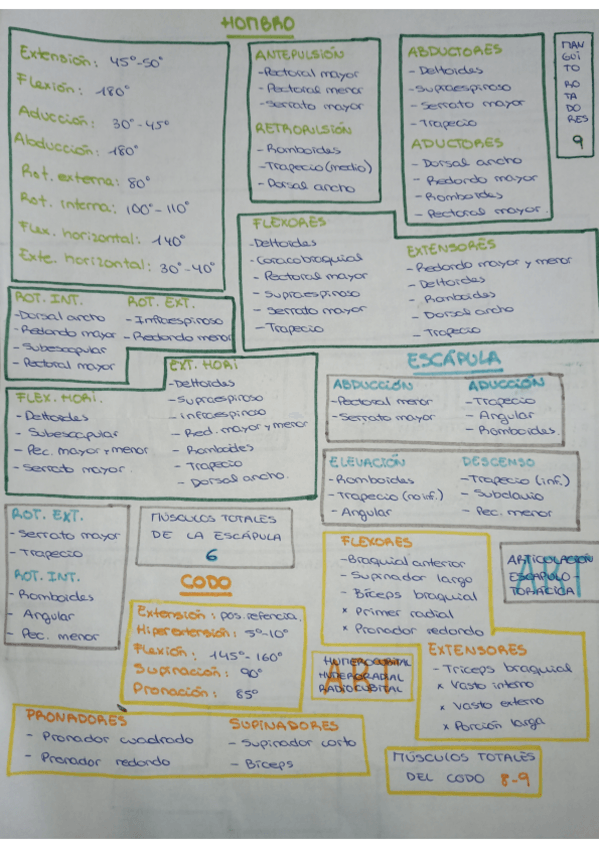 HOMBRO
Extensión: 45°-50°
Flexión: 180°
Aducción: 30°-45°
Abducción: 180°
Rot. externa: 80°
Rot. interna: 100°-110°
Flex. horizontal: 140°
Exte. horizontal: 30°-40°
ANTEPULSIÓN
-Pectoral mayor
-Pectoral menor
-Serrato mayor
RETROPULSIÓN
-Romboides
-Trapecio (medio)
-Dorsal ancho
ABDUCTORES
- Deltoides
-Supraespinoso
- Serrato mayor
-Trapecio
ADUCTORES
- Dorsal ancho
- Redondo mayor
- Romboides
- Pectoral mayor.
MAN
GUI
TO
RO
TA
DO
RES
9
FLEXORES
-Deltoides
-Coracobraquial
- Pectoral mayor
- Supraespinoso
- Serrato mayor
-Trapecio
EXTENSORES
- Redondo mayor y menor
- Deltoides
- Romboides
- Dorsal ancho
- Trapecio
ROT. INT.
-Dorsal ancho
-Redondo mayor
-Subescapular
-Pectoral mayor
ROT. EXT.
- Infraespinoso
-Redondo menor
FLEX. HORI.
- Deltoides.
- Subescapular
- Pec. mayor y menor
- Serrato mayor.
EXT. HORI
-Deltoides
-Supraespinoso
- infraespinoso
- Red. mayor y menor
- Romboides
- Trapecio
- Dorsal ancho.
ESCÁPULA
ABDUCCIÓN
-Pectoral menor
-Serrato mayor
ADUCCIÓN
-Trapecio
- Angular
- Romboides
ELEVACIÓN
-Romboides
-Trapecio (no inf.)
- Angular
DESCENSO
-Trapecio (inf.)
- Subclavio
- Pec. menor
ROT. EXT.
- Serrato mayor
- Trapecio
ROT. INT.
- Romboides
- Angular
- Pec. menor
MÚSCULOS TOTALES
DE LA ESCÁPULA
6
ART
ARTICULACIÓN
ESCAPULO-
TORACICA
CODO
Extensión: pos. refencia.
Hiperextensión: 5°-10°
Flexión: 145°-160°
Supinación: 90°
Pronación: 85°
FLEXORES
-Braquial anterior
- Supinador largo
- Bíceps braquial
x Primer radial
x Pronador redondo
EXTENSORES
- Tríceps braquial
x Vasto interno
x Vasto externo
x Porción larga
ART
HUMEROCUBITAL
HUMERORADIAL
RADIOCUBITAL
PRONADORES
- Pronador cuadrado
- Pronador redondo
SUPINADORES
- Supinador corto
- Bíceps
MÚSCULOS TOTALES
DEL CODO 8-9